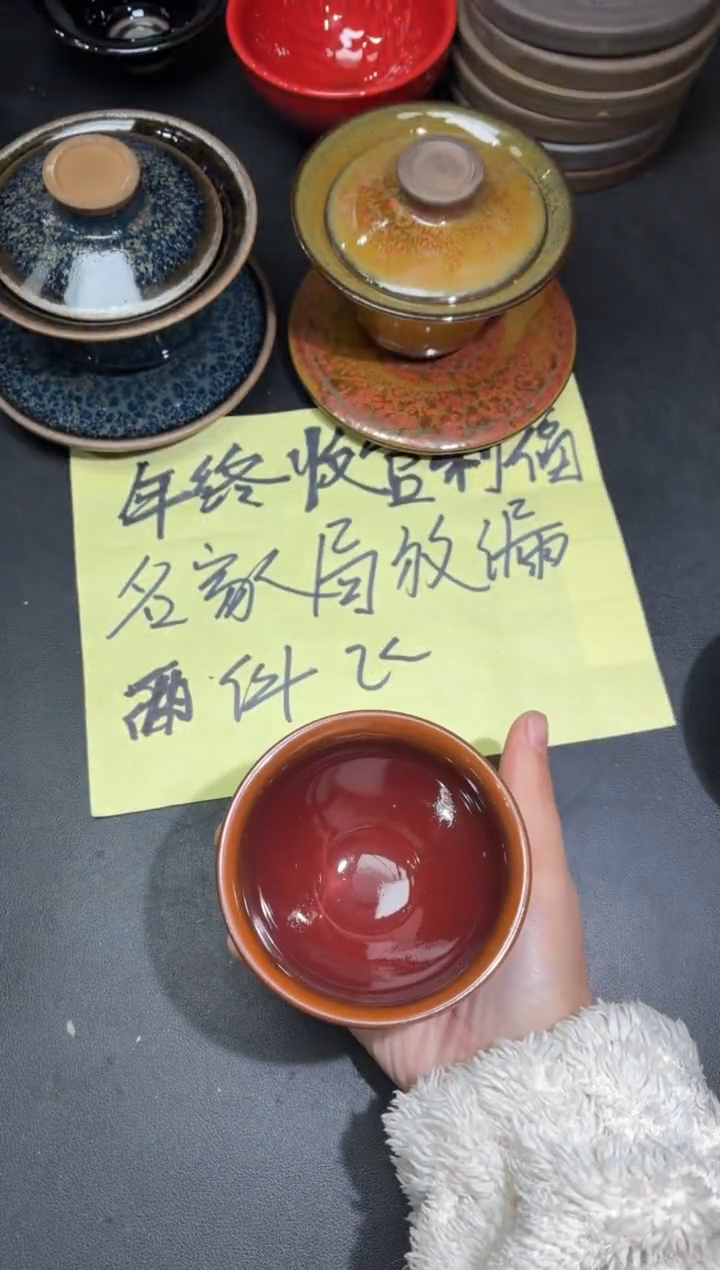 年终收官利福
名家局放漏
两件飞